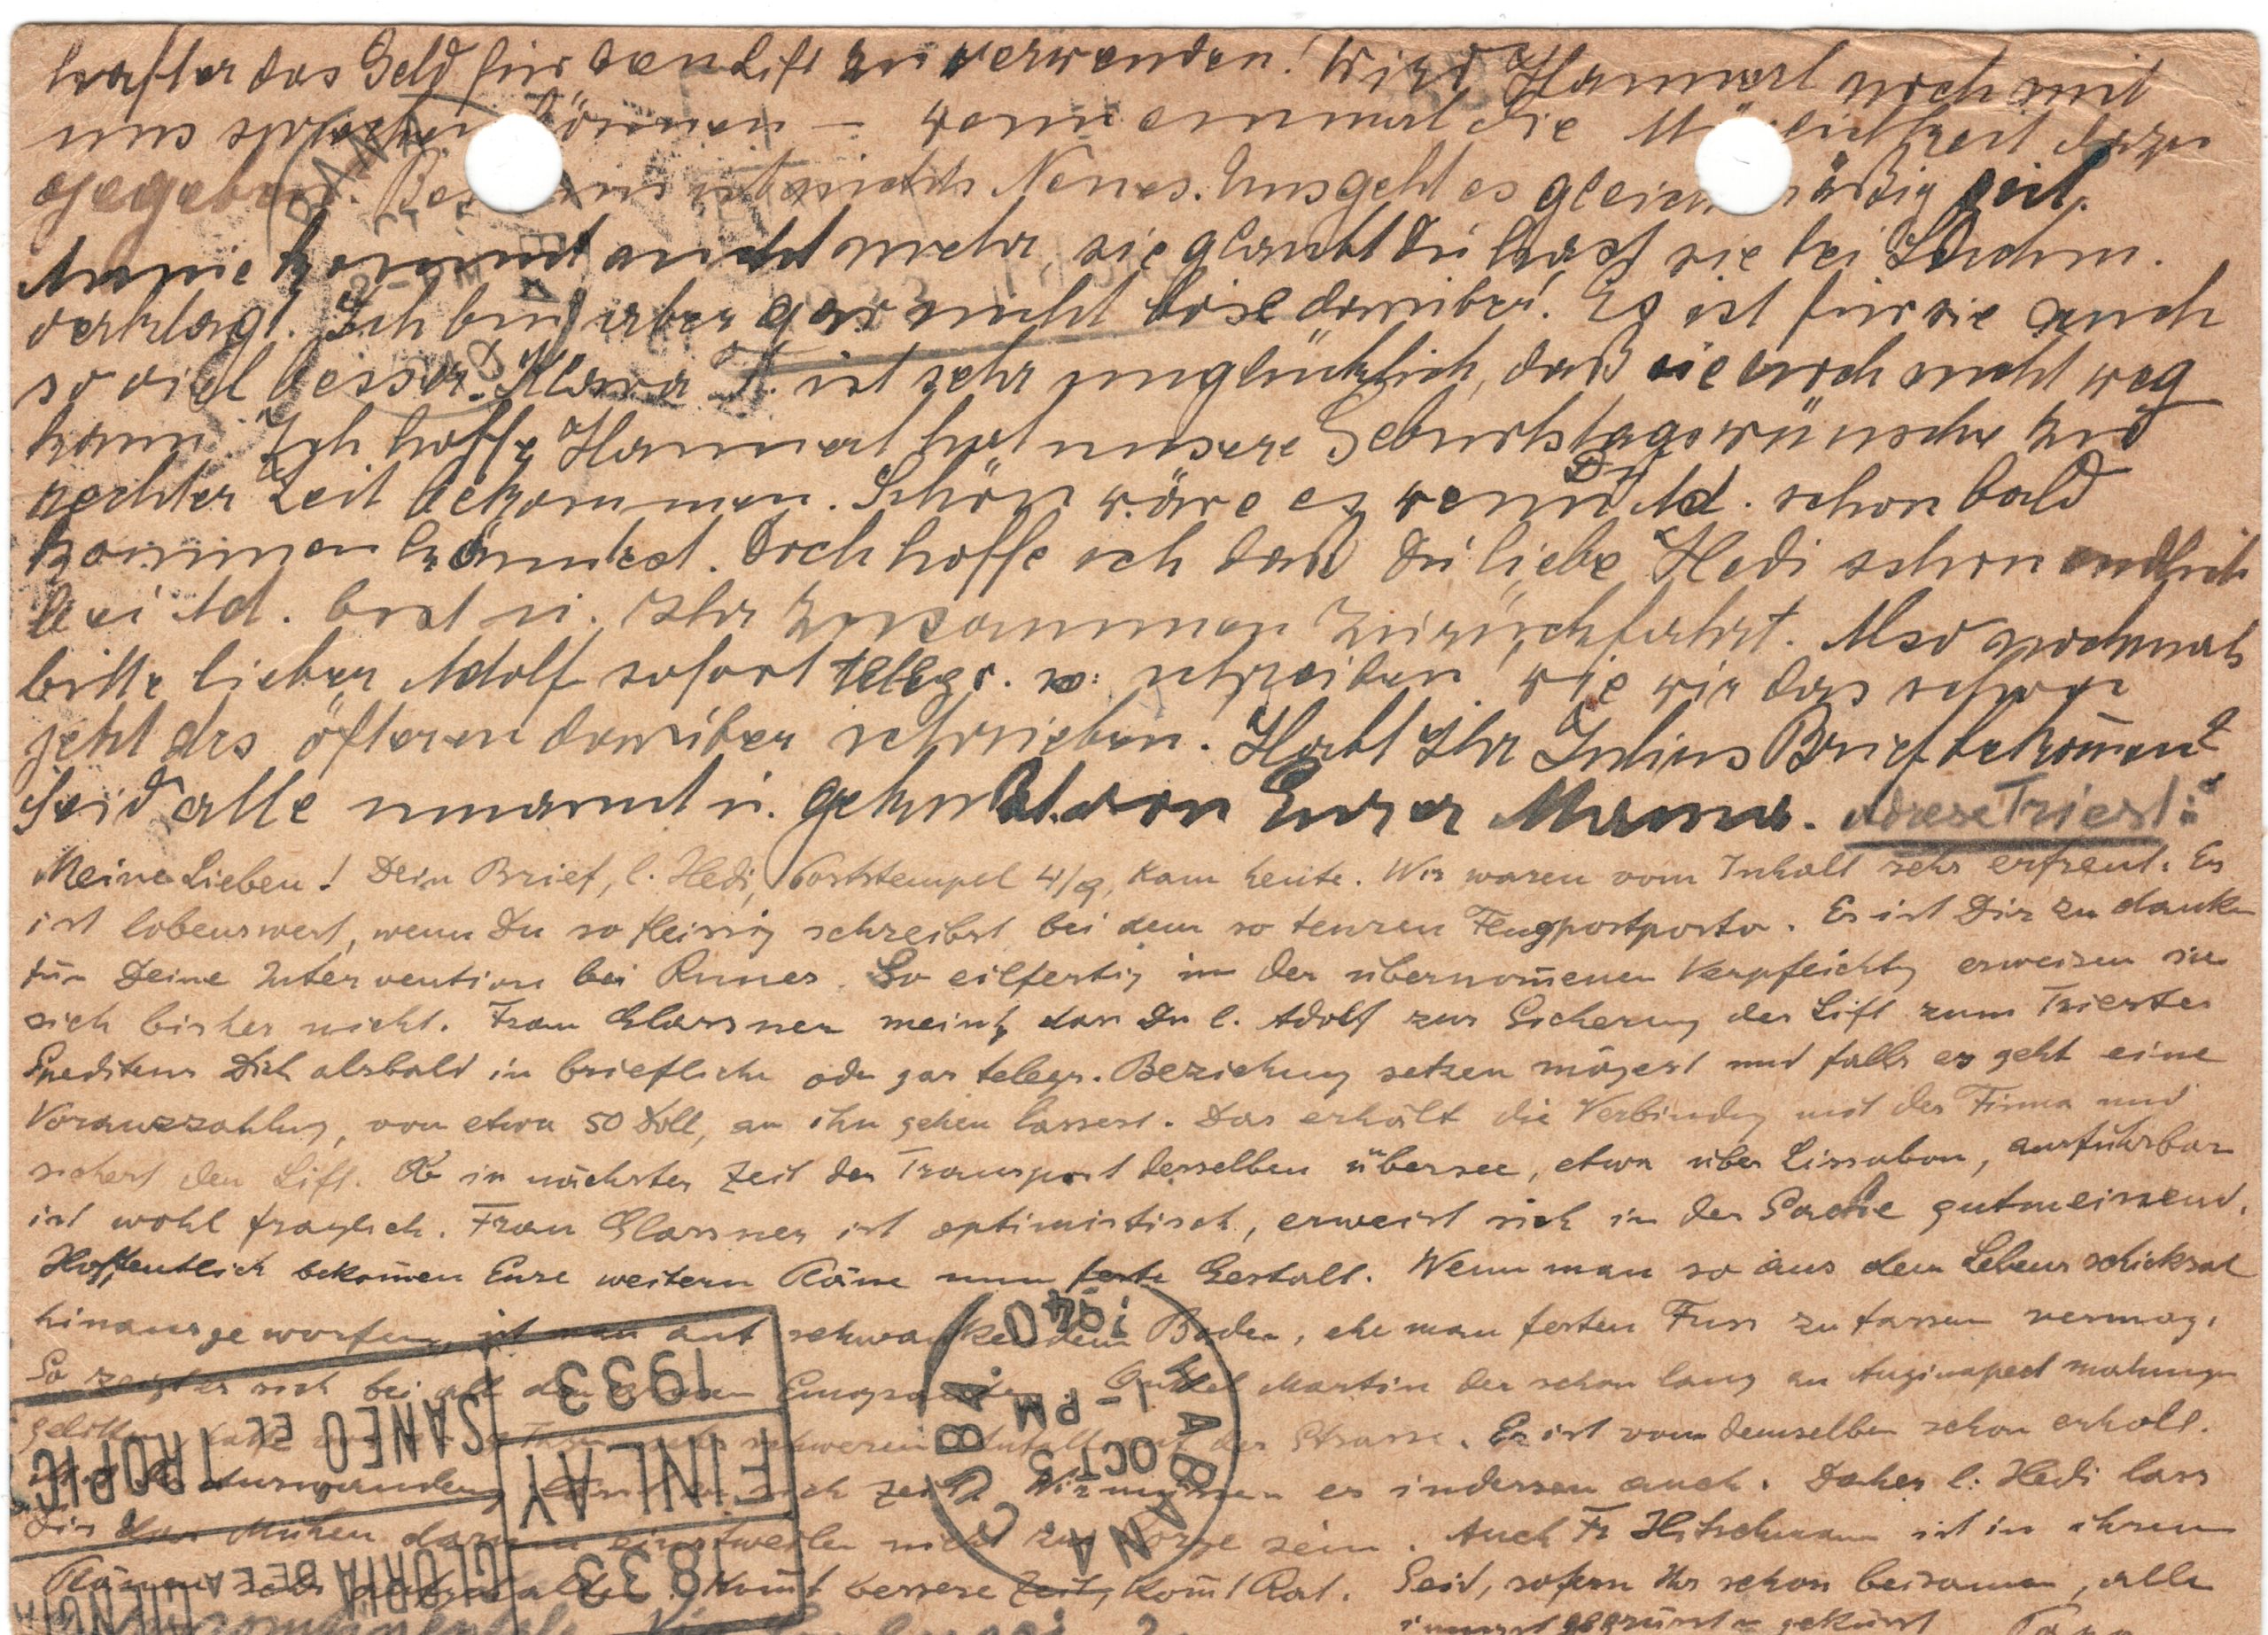 hafter das Geld für den Lift zu verwenden! Wird Hannerl noch mit
uns sprechen können – wenn einmal die Möglichkeit dazu
gegeben. Bei uns ist nichts Neues. Uns geht es gleichmäßig gut.
Annie kommt nicht mehr, sie glaubt Du hast sie bei
verklagt. Ich bin aber gar nicht böse darüber! Es ist für sie auch
so viel besser. Klara F. ist sehr unglücklich, daß sie noch nicht weg
kann. Ich hoffe Hannerl hat unsere Geburtstagswünsche zur
rechter Zeit bekommen. Schön wäre es wenn Du Ad. schon bald
kommen könntest. Doch hoffe ich daß Du liebe Hedi schon endlich
bei Ad. bist u. Ihr zusammen zurückfahrt. Also nochmals
bitte lieber Adolf sofort telegr. u. schreiben wie wir das schon
jetzt des öfteren darüber schrieben. Habt Ihr Julius Brief bekom̄en?
Seid alle umarmt u. geküßt von Eurer Mama. Adresse Triest:
Meine Lieben! Dein Brief, l. Hedi, Poststempel 4/9, kam heute. Wir waren vom Inhalt sehr erfreut. Es
ist lobenswert, wenn Du so fleissig schreibst bei dem so teuren Flugpostporto. Es ist Dir zu danken
für Deine Intervention bei Runes. So eilfertig in der übernom̄enen Verpflichtg erweisen sie
sich bisher nicht. Frau Glassner meint, dass Du l. Adolf zur Sicherung des Lift zum Triester
Spediteur Dich alsbald in briefliche oder gar telegr. Beziehung setzen mögest und falls es geht eine
Vorauszahlung, von etwa 50 Doll, an ihn gehen lassest. Das erhält die Verbindung mit der Firma und
sichert den Lift. Ob in nächster Zeit der Transport desselben übersee, etwa über Lissabon, ausführbar
ist wohl fraglich. Frau Glassner ist optimistisch, erweist sich in der Sache gutmeinend.
Hoffentlich bekom̄en Eure weitern Pläne nun feste Gestalt. Wenn man so aus dem Lebensschicksal
hinausgeworfen, ist man auf schwankendem Boden, ehe man festen Fuss zu fassen vermag.
So zeigt es sich bei all den Onkel Martin der schon lang an
gelitten, hatte schweren Anfall auf der Strasse. Er ist von demselben schon erholt.
Mit der Auswanderung lässt er sich Zeit. Wir müssen es indessen auch. Daher l. Hedi lass
Dir das Mühen darum einstweilen nicht zur Sorge sein. Auch Fr Hitschmann ist in ihren
Plänen sehr aufgehalten. Kom̄t bessere Zeit, kom̄t Rat. Seid, sofern Ihr schon beisamen, alle
innigst gegrüsst u geküsst Papa
HABANA CUBA
OCT 5
1-PM
1940
1833
FINLAY
1933
GLORIA DE LA CIENCIA
SANEO EL TROPICO